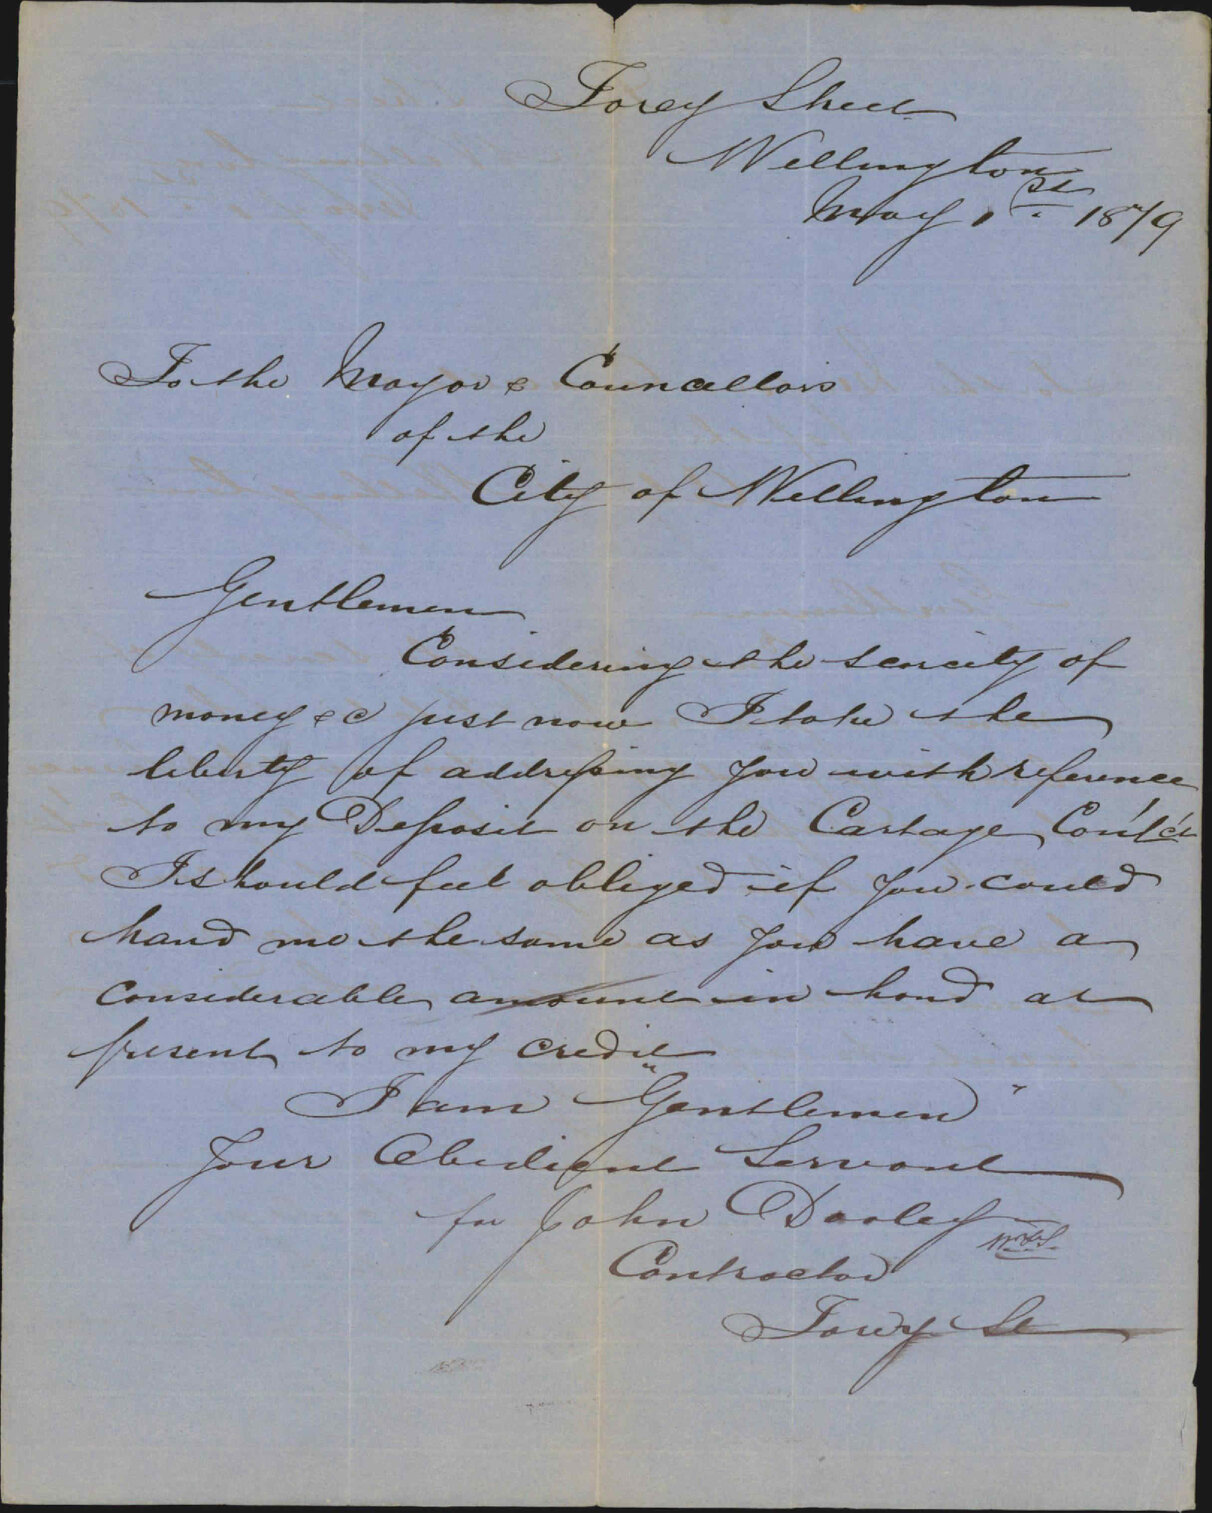 Torey Street
Wellington
May 1st 1879
To the Mayor & Councellors
of the
City of Wellington
Gentlemen
Considering the scarcity of
money &c just now I take the
liberty of addressing you with reference
to my Deposit on the Cartage Cont'ct
I should feel obliged if you could
hand me the same as you have a
considerable amount in hand at
present to my credit
I am "Gentlemen"
Your Obedient Servant
for John Dooley
Contractor
Torey St